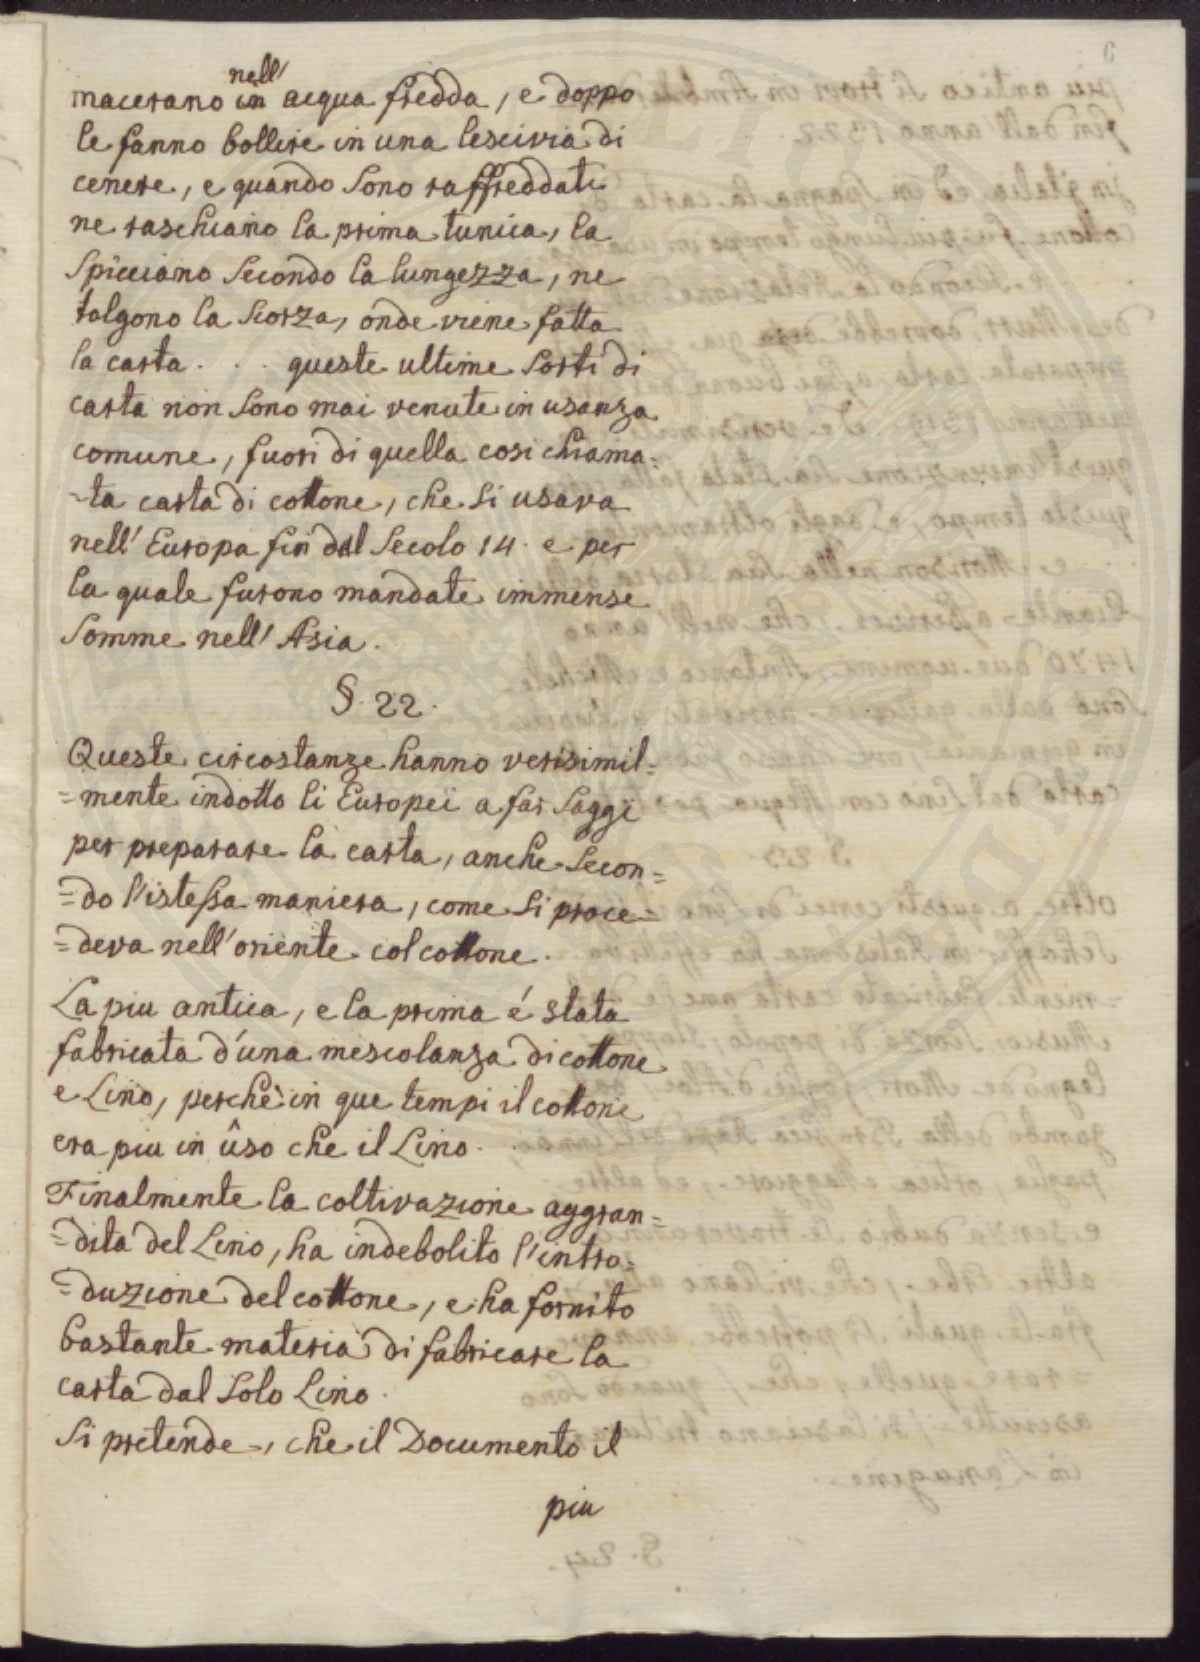 6
nell'
macerano in acqua fredda, e doppo
le fanno bollire in una lescivia di
cenere, e quando sono raffreddati
ne raschiano la prima tunica, la
spicciano secondo la lungezza, ne
tolgono la scorza, onde viene fatta
la carta . . . queste ultime sorti di
carta non sono mai venute in usanza
comune, fuori di quella cosi chiama=
-ta carta di cottone, che si usava
nell' Europa fin dal secolo 14. e per
la quale furono mandate immense
somme nell' Asia.
§. 22.
Queste circostanze hanno verisimil=
=mente indotto li Europei a far saggi
per preparare la carta, anche secon=
=do l'istessa maniera, come si proce=
=deva nell'oriente col cottone.
La piu antica, e la prima é stata
fabricata d'una mescolanza di cottone
e Lino, perchè in que tempi il cottone
era piu in ûso che il Lino.
Finalmente la coltivazione aggran=
=dita del Lino, ha indebolito l'intro=
=duzione del cottone, e ha fornito
bastante materia di fabricare la
carta dal solo Lino.
Si pretende, che il Documento il
piu